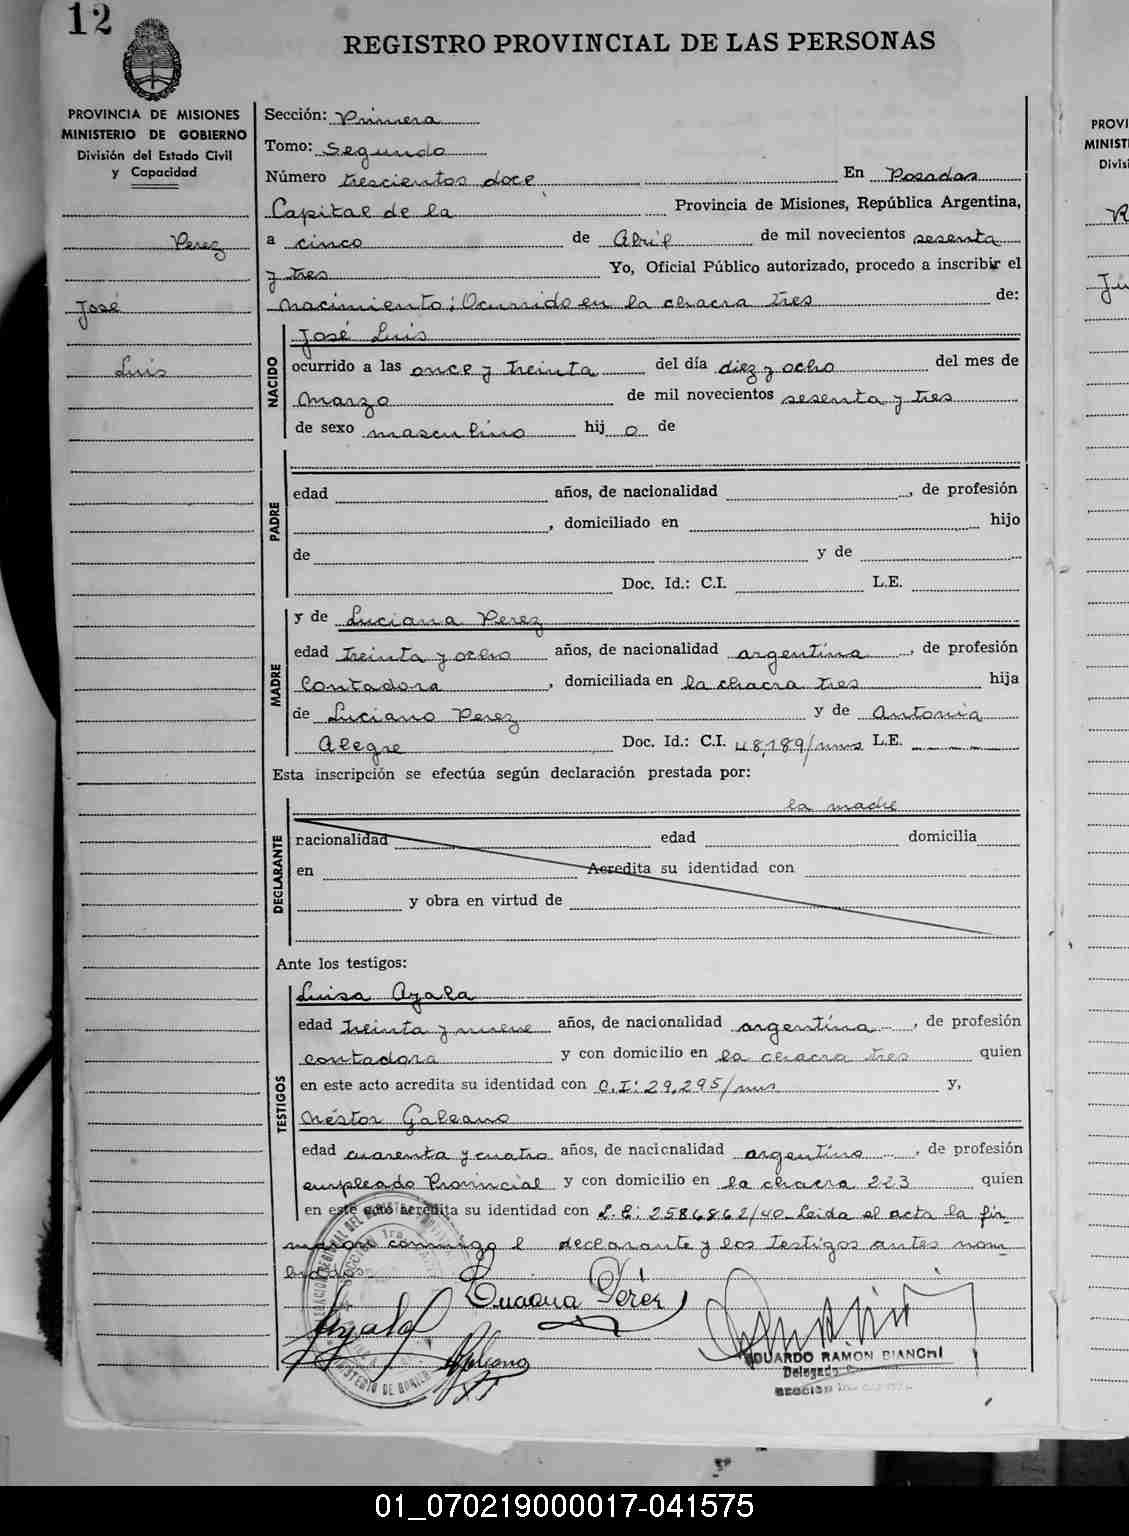 12
REGISTRO PROVINCIAL DE LAS PERSONAS
PROVINCIA DE MISIONES
MINISTERIO DE GOBIERNO
División del Estado Civil
y Capacidad
Perez
José
Luis
Sección: Primera
Tomo: Segundo
Número trescientos doce En Posadas
Capital de la Provincia de Misiones, República Argentina,
a cinco de Abril de mil novecientos sesenta
y tres Yo, Oficial Público autorizado, procedo a inscribir el
nacimiento; Ocurrido en la chacra tres de:
NACIDO
José Luis
ocurrido a las once y treinta del día diez y ocho del mes de
marzo de mil novecientos sesenta y tres
de sexo masculino hij o de
PADRE
edad años, de nacionalidad , de profesión
, domiciliado en hijo
de y de
Doc. Id.: C.I. L.E.
MADRE
y de Luciana Perez
edad treinta y ocho años, de nacionalidad argentina , de profesión
Contadora , domiciliada en la chacra tres hija
de Luciano Perez y de Antonia
Alegre Doc. Id.: C.I. 48,189/mns L.E.
Esta inscripción se efectúa según declaración prestada por:
la madre
DECLARANTE
nacionalidad edad domicilia
en Acredita su identidad con
y obra en virtud de
Ante los testigos:
TESTIGOS
Luisa Ayala
edad treinta y nueve años, de nacionalidad argentina , de profesión
contadora y con domicilio en la chacra tres quien
en este acto acredita su identidad con C.I: 29,295/mns y,
Néstor Galeano
edad cuarenta y cuatro años, de nacionalidad argentino , de profesión
empleado Provincial y con domicilio en la chacra 223 quien
en este acto acredita su identidad con L.E: 2586862/40 Leida el acta la fir-
maron conmigo el declarante y los testigos antes nom-
brados
Luciana Pérez
Ayala
Galeano
EDUARDO RAMON BIANCHI
Delegado
SECCION
PROVI
MINIST
Divisi
01_070219000017-041575